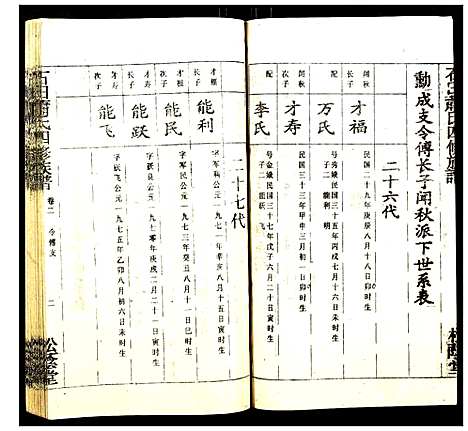 動成支令傅长子闻秋派下世系表
二十六代
闻秋
长子
才福
民国二十九年庚辰八月十一日卯时生
配
万氏
号秀娥民国三十五年丙戌七月十六日戌时生
子二 能利 明
闻秋
次子
才寿
民国三十三年甲申三月初一日卯时生
配
李氏
号金娥民国三十七年戊子六月二十日寅时生
子二 能跃 飞
二十七代
才福
长子
能利
字军公元一九七一年辛亥八月十五日寅时生
才福
次子
能明
字军公元一九七三年癸丑八月十一日巳时生
才寿
长子
能跃
字跃员公元一九七零年庚戌二月二十一日寅时生
才寿
次子
能飞
字跃飞公元一九七五年乙卯八月初六日未时生
卷二
令傅支
二
松荫堂